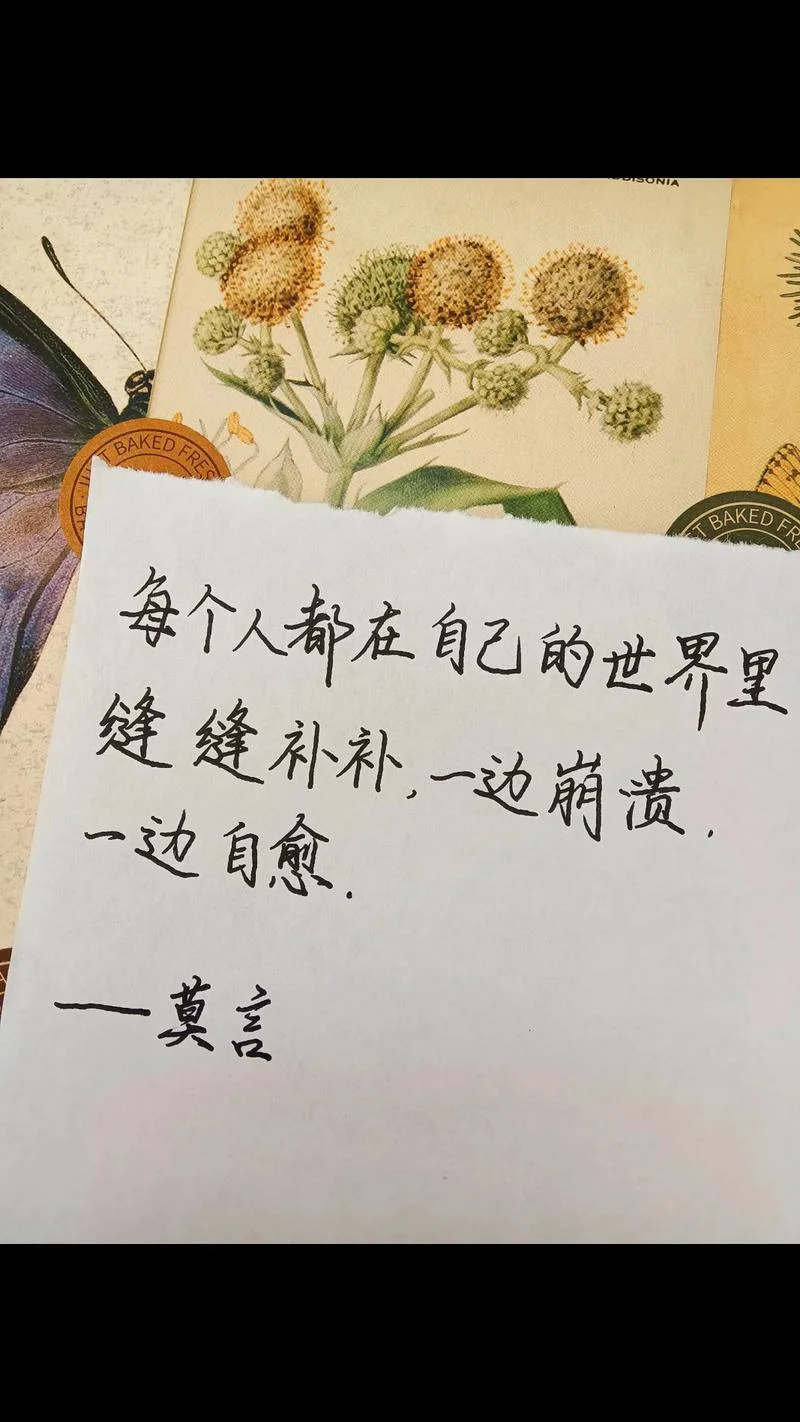 DDISONIA
JUST BAKED FRES
ST BAKED FRE
每个人都在自己的世界里
缝缝补补,一边崩溃,
一边自愈.
——莫言